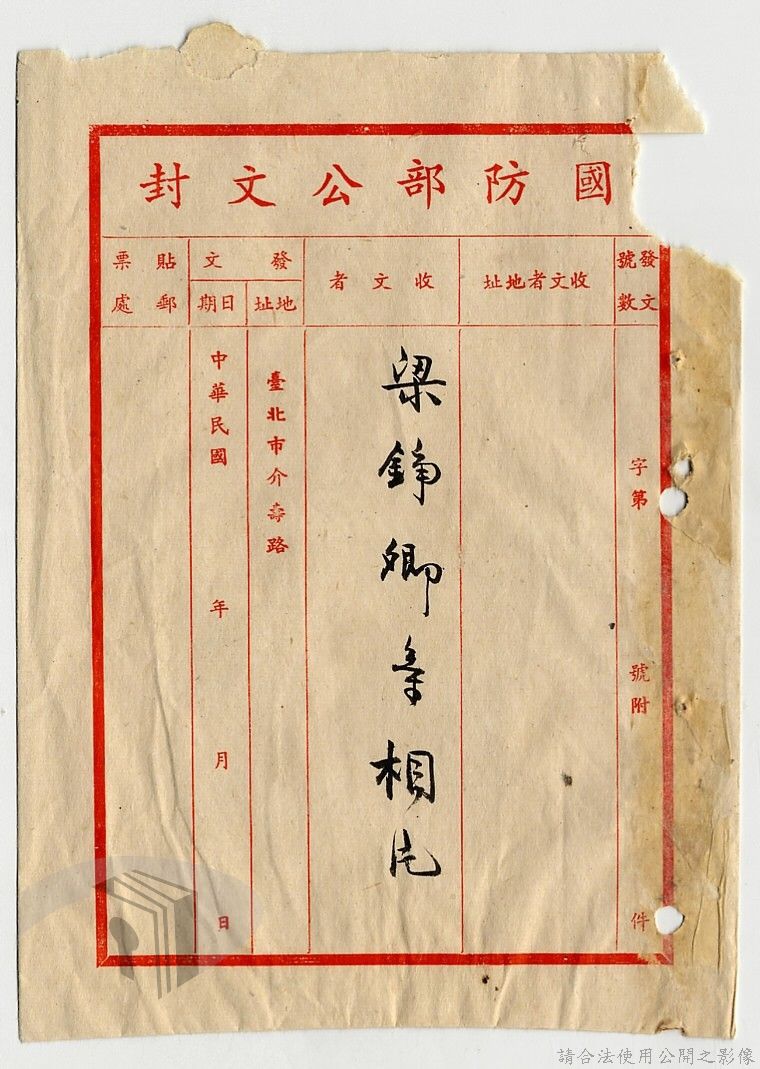 國防部公文封
發文號數
字第
號附
件
收文者地址
收文者
梁錚卿等相片
發文
地址
臺北市介壽路
日期
中華民國 年 月 日
貼郵票處
請合法使用公開之影像